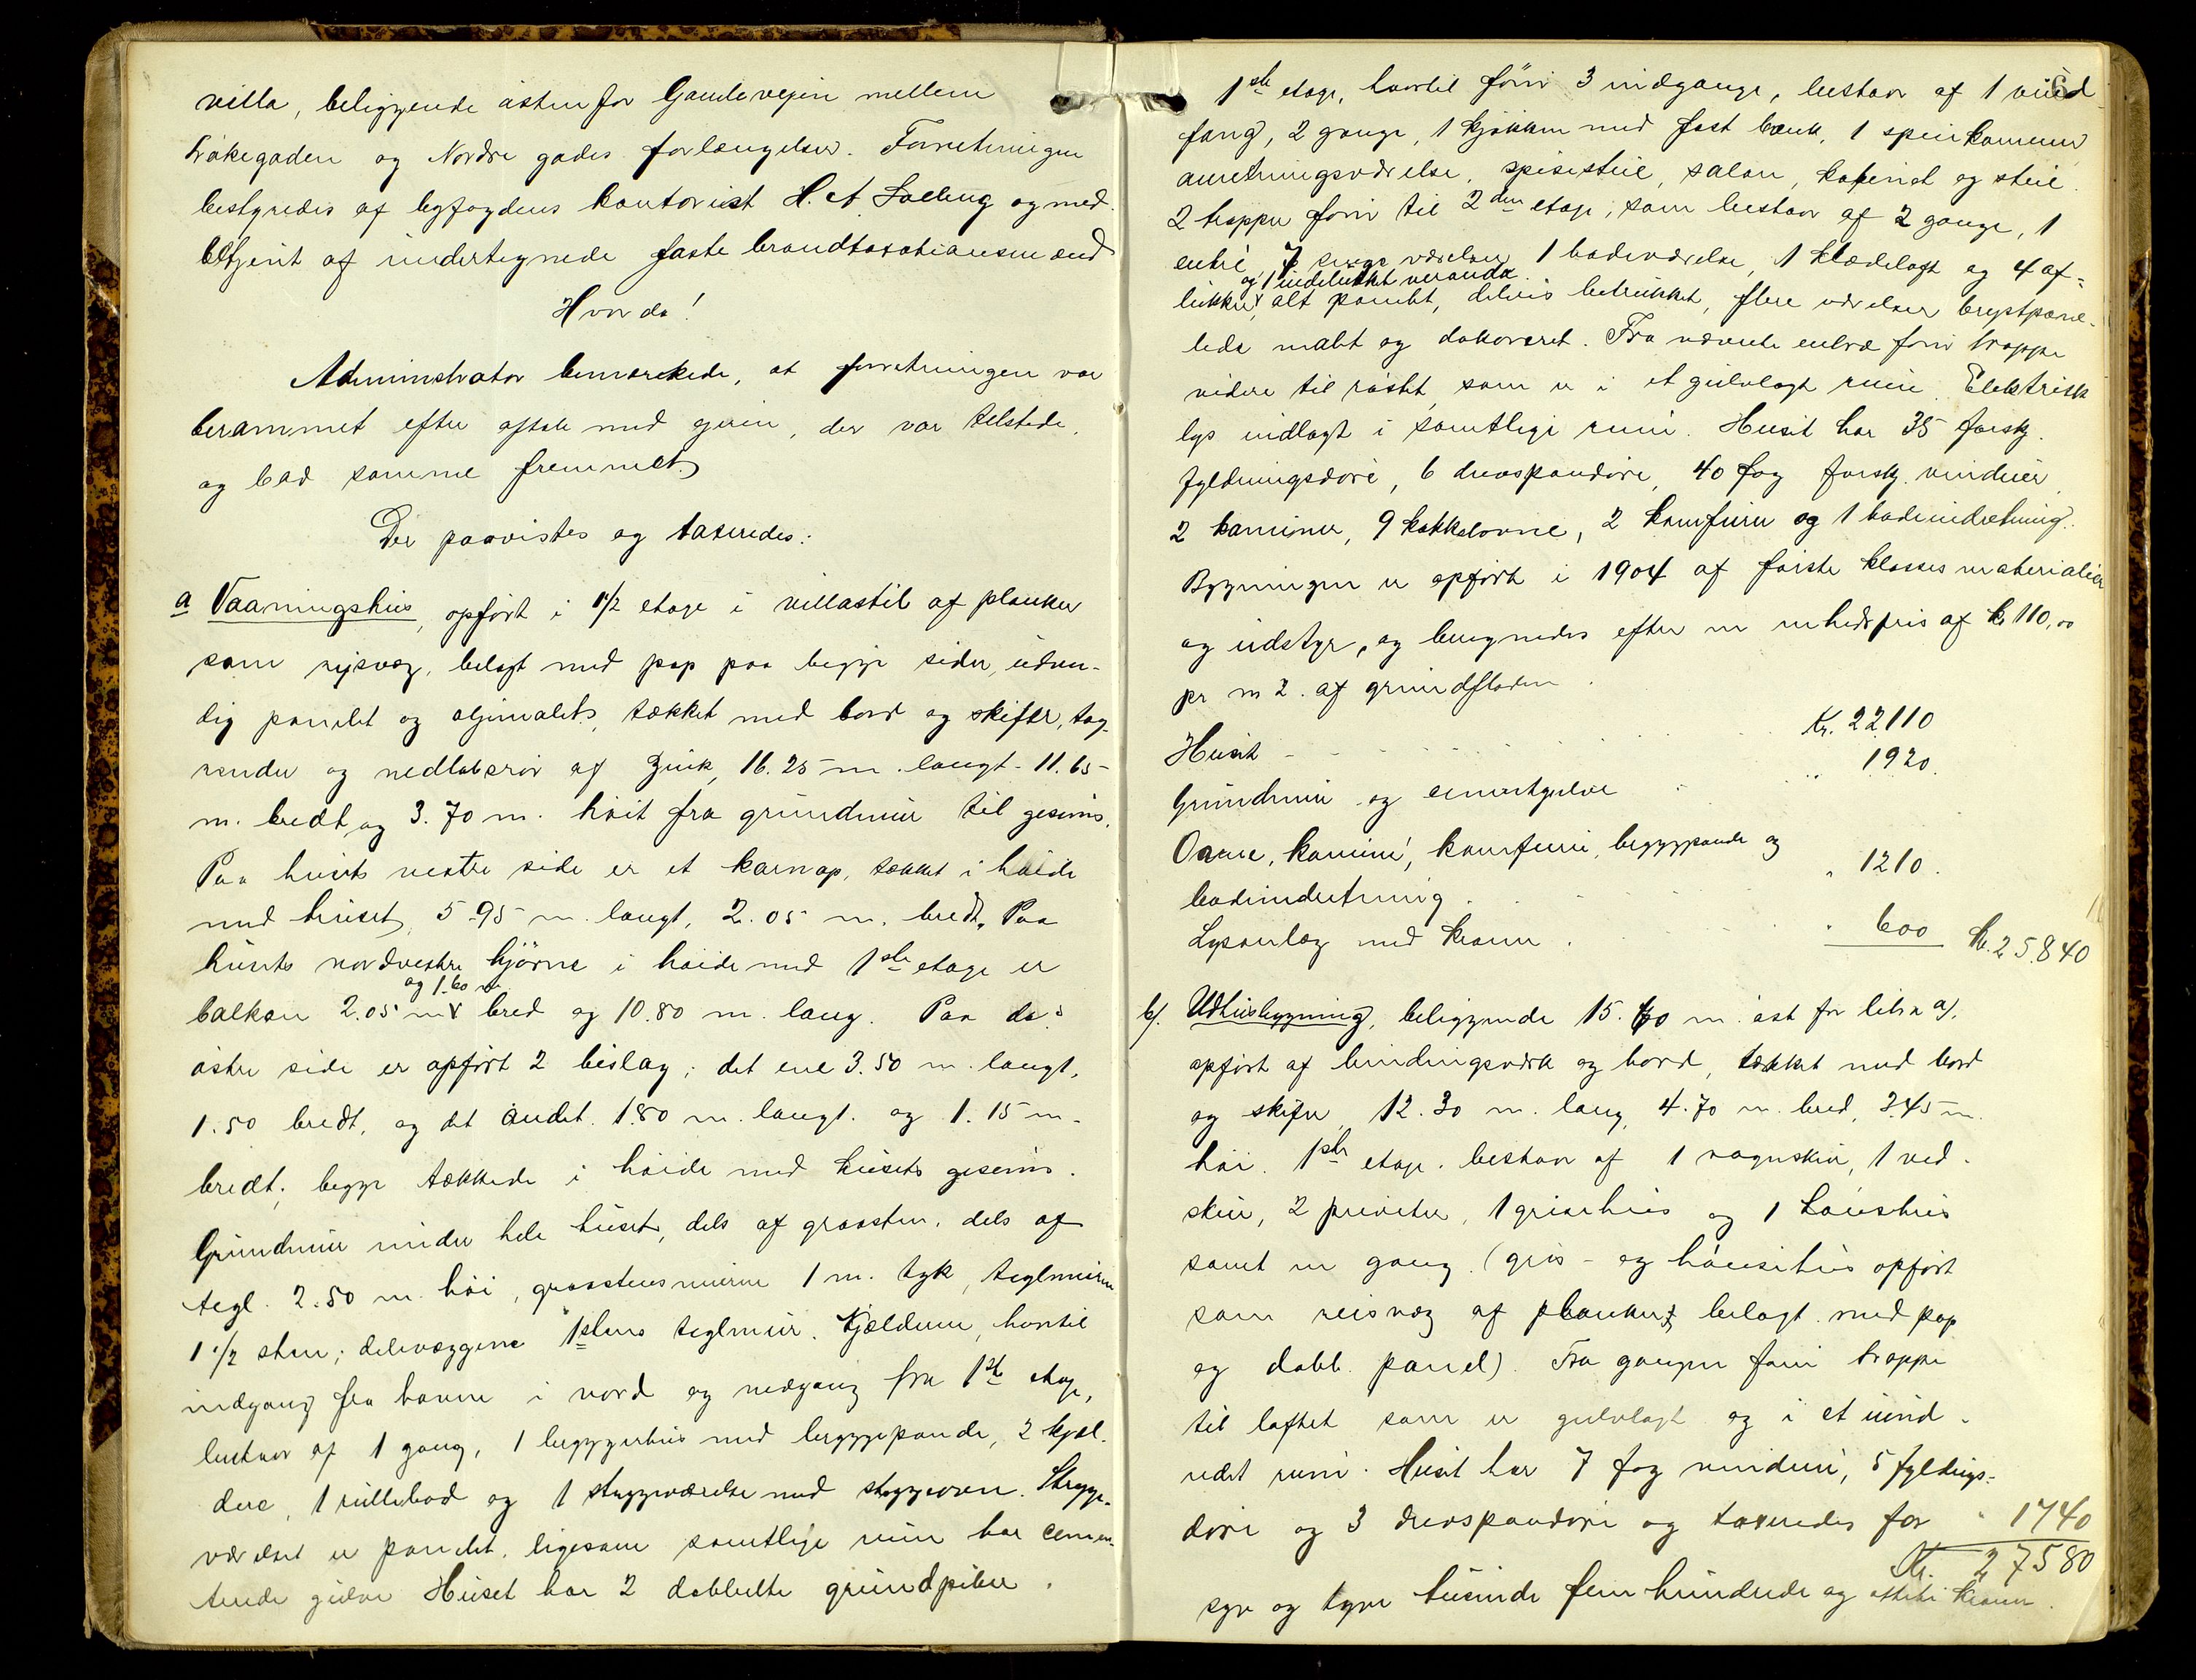 villa, beliggende østenfor Gandsveien mellem
Kråkegaden og Nordre gades forlængelser. Forretningen
bestyredes af byfogdens kontorist H. A. Solberg og med.
betjent af undertegnede faste brandtaxationsmænd
Hvorda!
Administrator bemærkede, at forretningen var
berammet efter aftale med eieren, der var tilstede,
og bad samme fremmet.
Der paavistes og taxeredes:
a Vaaningshus, opført i 1 1/2 etage i villastil af planker
som reisvæg, belagt med pap paa begge sider, udven-
dig panelet og oljemalet, tækket med bord og skifer, tag-
render og nedløbsrør af zink, 16.25 m. langt - 11.65
m. bredt, og 3.70 m. høit fra grundmur til gesims.
Paa husets vestre side er et karnap, tækket i høide
med huset, 5.95 m. langt, 2.05 m. bredt. Paa
husets nordvestre hjørne i høide med 1ste etage er
og 1.60 m
balkon 2.05 m bred og 10.80 m. lang. Paa do.s
østre side er opført 2 bislag; det ene 3.50 m. langt,
1.50 bredt, og det andet 1.80 m. langt. og 1.15 m.
bredt; begge tækkede i høide med husets gesims.
Grundmur under hele huset, dels af graasten, dels af
tegl. 2.50 m. høi, graastensmuren 1 m. tyk, teglmuren
1 1/2 sten; delevæggene 1 stens teglmur. Kjælderen, hvortil
indgang fra haven i nord og nedgang fra 1ste etage,
bestaar af 1 gang, 1 bryggerhus med bryggepande, 2 kjæl-
dere, 1 rullebod og 1 strygeværelse med strygeovn. Stryge-
værelset er panelet, ligesom samtlige rum har cemen-
terede gulve. Huset har 2 dobbelte grundpiber.
1ste etage, hvortil fører 3 indgange, bestaar af 1 vind
fang, 2 gange, 1 kjøkken med fast bænk, 1 speiskammer,
anretningsværelse, spisestue, salon, kabinet og stue.
2 trapper fører til 2den etage, som bestaar af 2 gange, 1
entré, 7 værelser, 1 badeværelse, 1 klædeloft og 4 af-
og 1 indelukket veranda.
lukker, alt panelt, delvis betrukket, flere værelser brystpane-
lede malt og dekoreret. Fra nævnte entre fører trappe
videre til røstet, som er i et gulvlagt rum. Elektrisk
lys indlagt i samtlige rum. Huset har 35 forskj.
fyldningsdøre, 6 drevspandøre, 40 fag forskj. vinduer,
2 kaminer, 9 kakkelovne, 2 komfurer og 1 badeindretning.
Bygningen er opført i 1904 af første klasses materialier
og udstyr, og beregnedes efter en enhedspris af kr. 110,00
pr m 2. af grundfladen.
Huset Kr. 22110
Grundmur og cementgulve " 1920.
Ovne, kaminer, komfurer, bryggepande og
badeindretning " 1210.
Lysanlæg med kroner " 600 Kr. 25.840
b/. Udhusbygning, beliggende 15.60 m. øst for litra a).
opført af bindingsværk og bord, tækket med bord
og skifer, 12.30 m. lang, 4.70 m. bred, 3.45 m.
høi. 1ste etage. bestaar af 1 vognskur, 1 ved-
skur, 2 priveter, 1 grisehus og 1 hønsehus
samt en gang. (gris- og hønsehus opført
som reisvæg af planker, belagt med pap
og dobb. panel). Fra gangen fører trappe
til loftet som er gulvlagt og i et uind-
redet rum. Huset har 7 fag vinduer, 5 fyldings-
døre og 3 drevspandøre og taxeredes for " 1740
Kr. 27580
syv og tyve tusinde fem hundrede og otteti kroner.